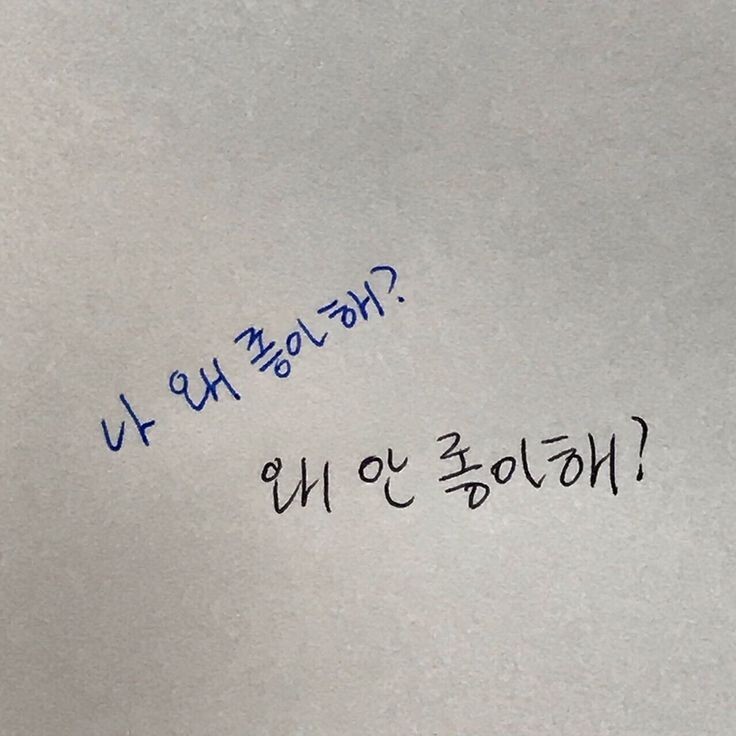 나 왜 좋아해?
왜 안 좋아해?